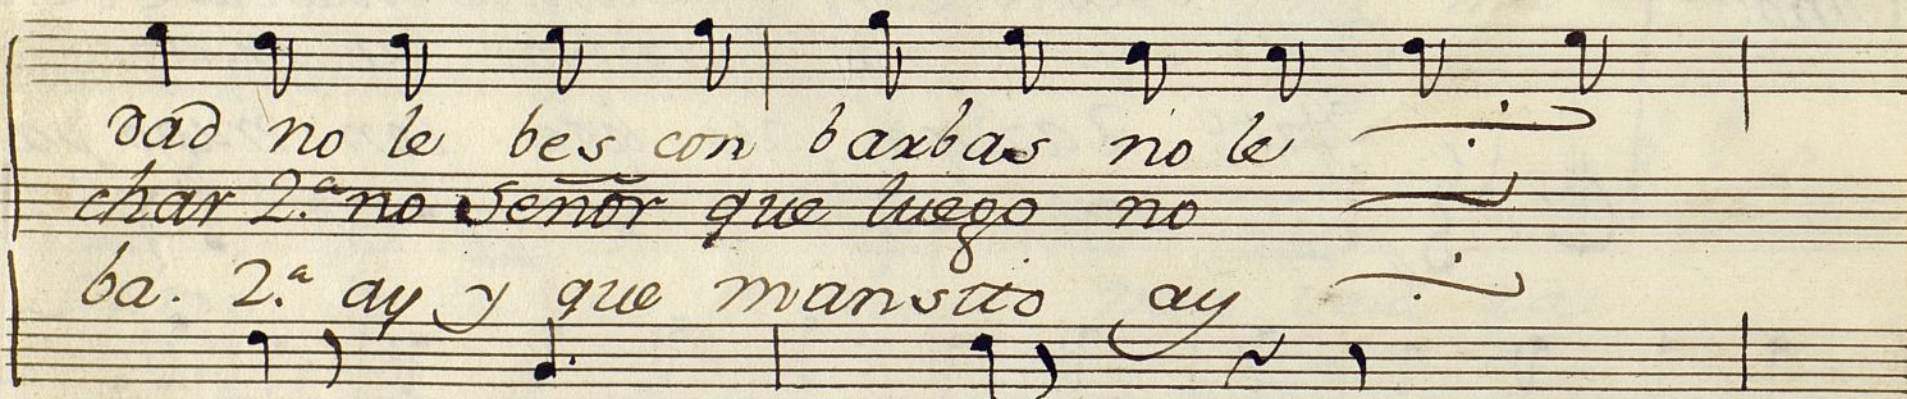 dad no le bes con barbas no le
char 2.ª no Señor que luego no
ba. 2.ª ay y que mansito ay